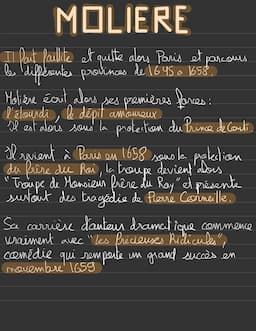 MOLIERE
Il fait faillite et quitte alors Paris et parcours
les différentes provinces de 1645 à 1658.
Molière écrit alors ses premières farces :
l'étourdi, le dépit amoureux
Il est alors sous la protection du Prince de Conti
Il revient à Paris en 1658 sous la protection
du frère du Roi, la troupe devient alors
"Troupe de Monsieur frère du Roy" et présente
surtout des tragédie de Pierre Corneille.
Sa carrière d'auteurs dramatique commence
vraiment avec "les Précieuses Ridicules",
comédie qui remporte un grand succès en
novembre 1659